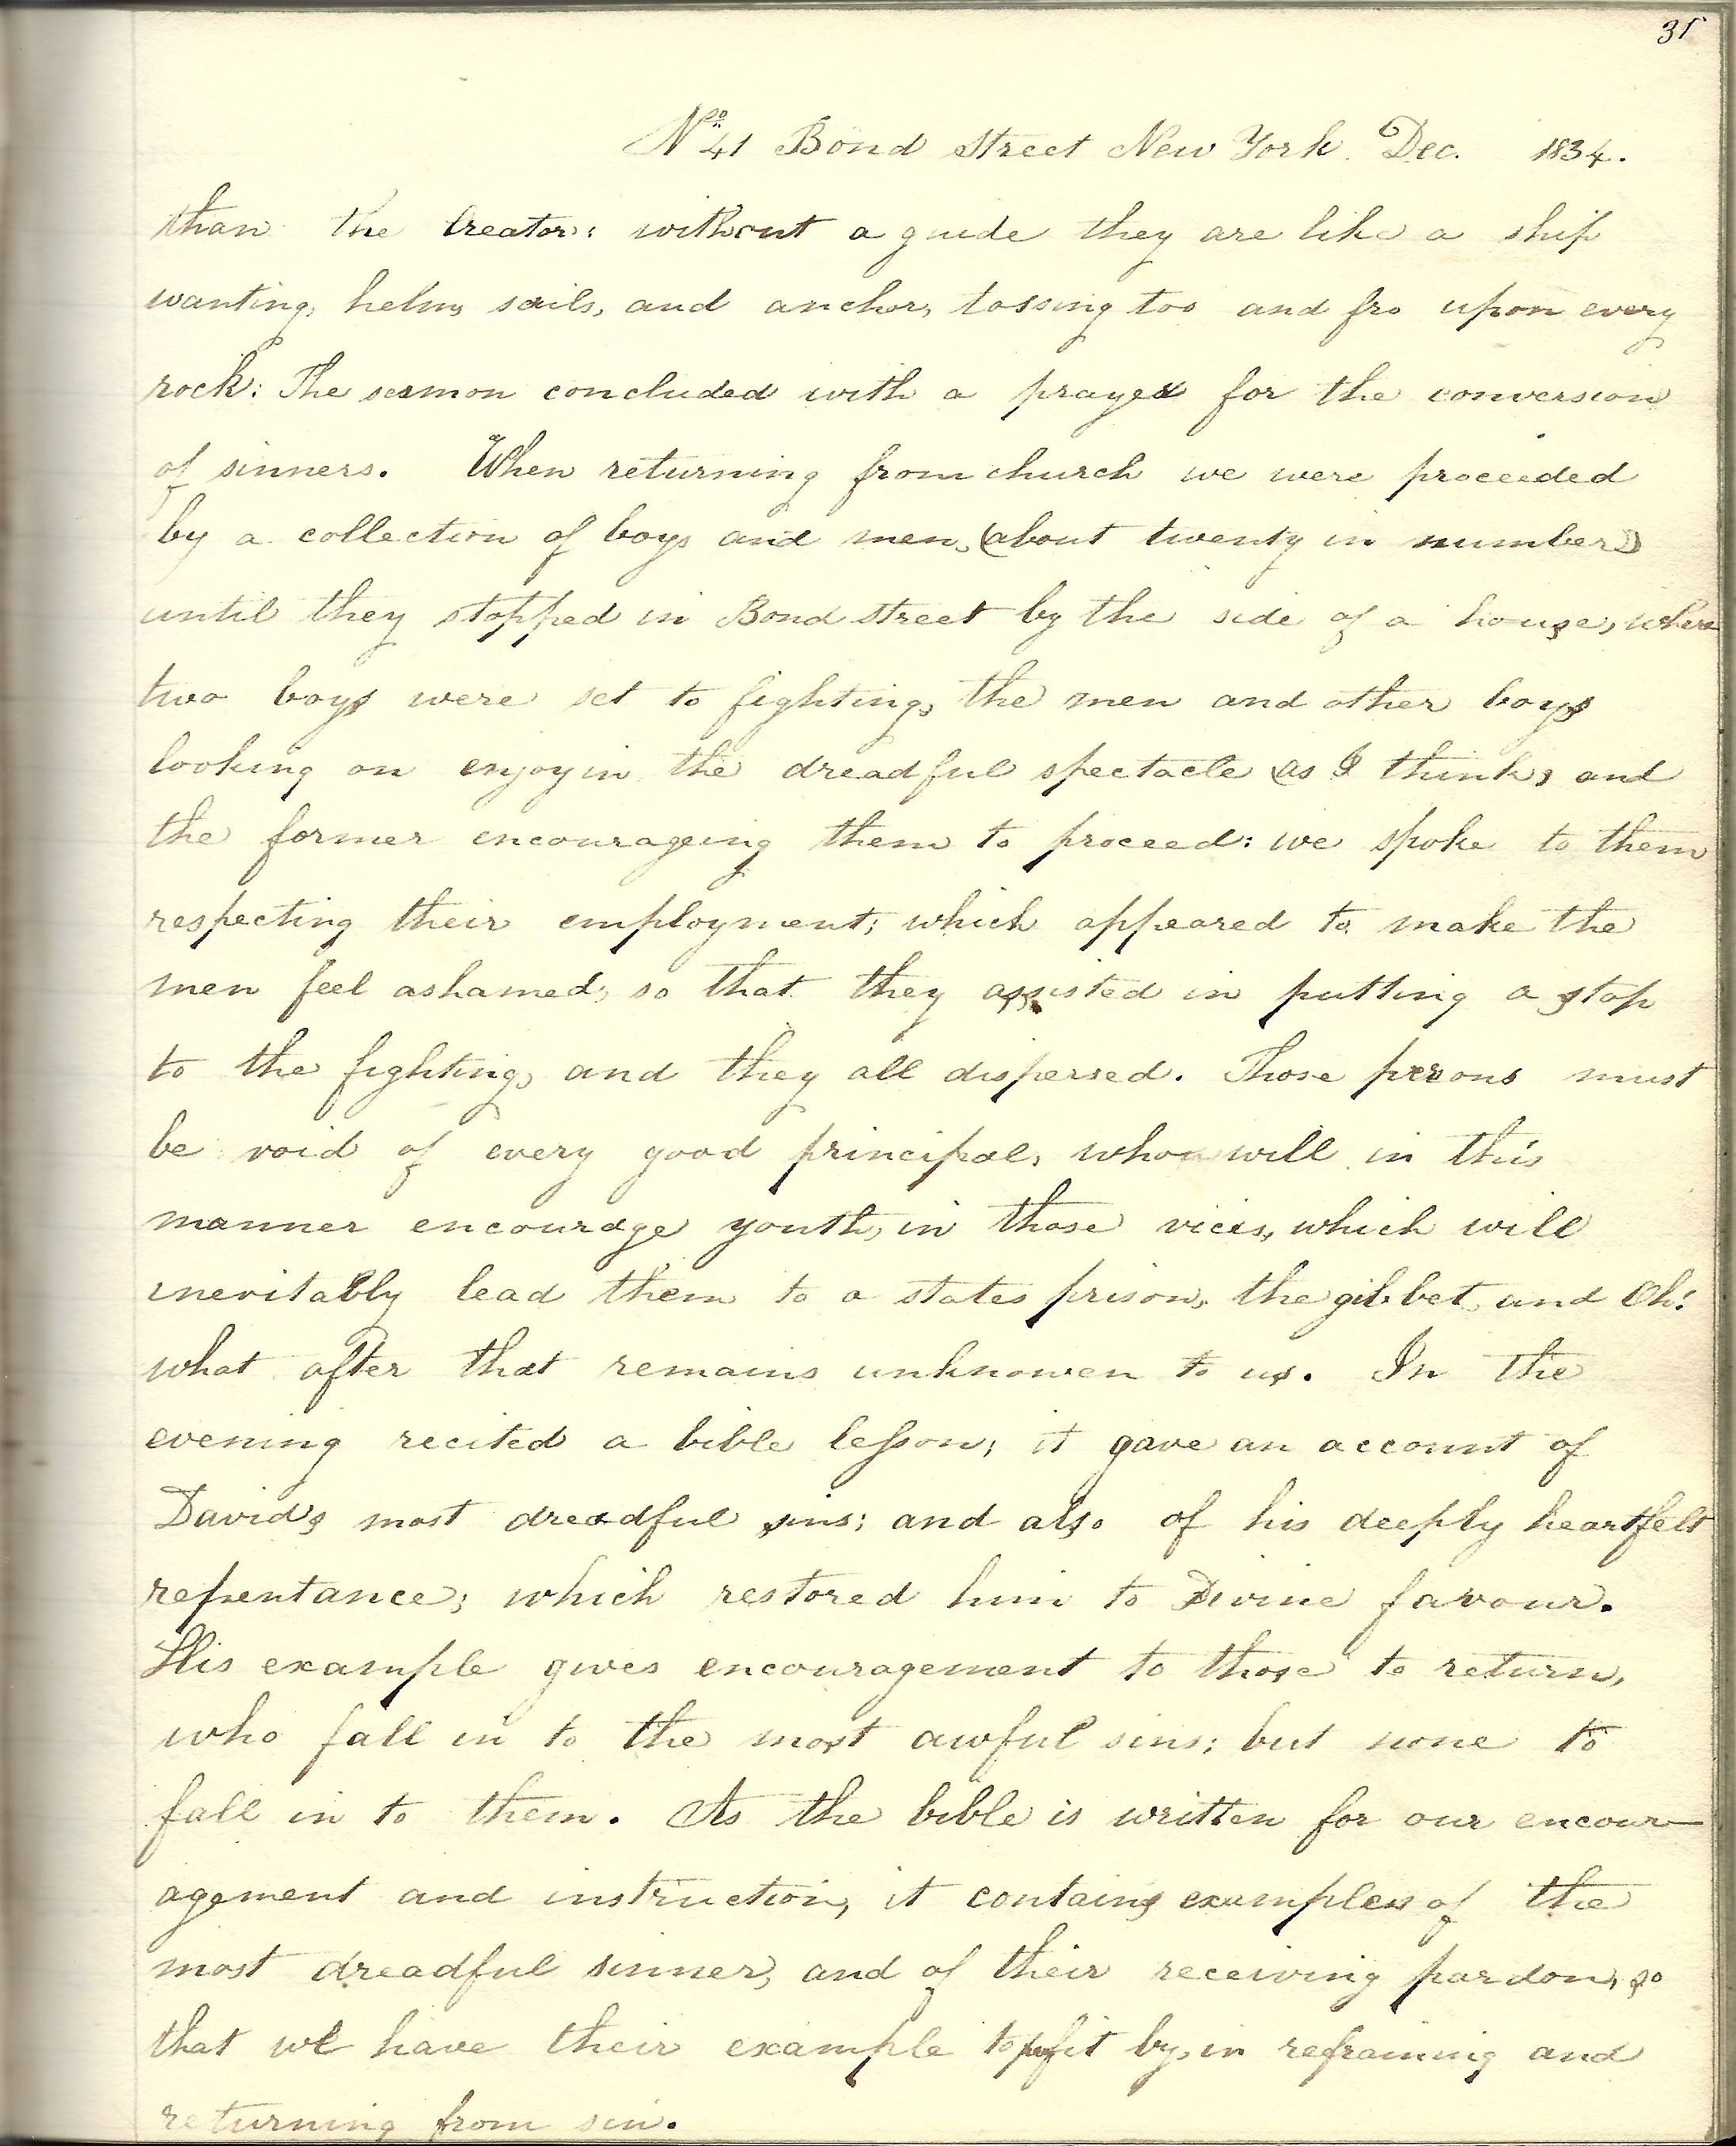 35
No 41 Bond Street New York. Dec. 1834.
than the Creator: without a guide they are like a ship
wanting, helm, sails, and anchor, tossing too and fro upon every
rock: The sermon concluded with a prayer for the conversion
of sinners. When returning from church we were proceeded
by a collection of boys and men, (about twenty in number)
until they stopped in Bond street by the side of a house, where
two boys were set to fighting, the men and other boys
looking on enjoyin the dreadful spectacle (as I think, and
the former encourageing them to proceed: we spoke to them
respecting their employment; which appeared to make the
men feel ashamed; so that they assisted in putting a stop
to the fighting, and they all dispersed. Those persons must
be void of every good principal, who will in this
manner encourage youth, in those vices, which will
inevitably lead them to a states prison, the gibbet, and Oh!
what after that remains unknowen to us. In the
evening recited a bible lesson; it gave an account of
Davids most dreadful sins; and also of his deeply heartfelt
repentance; which restored him to Divine favour.
His example gives encouragement to those to return,
who fall in to the most awful sins; but none to
fall in to them. As the bible is written for our encour-
agement and instruction, it contains examples of the
most dreadful sinner, and of their receiving pardon, so
that we have their example to profit by, in refraining and
returning from sin.